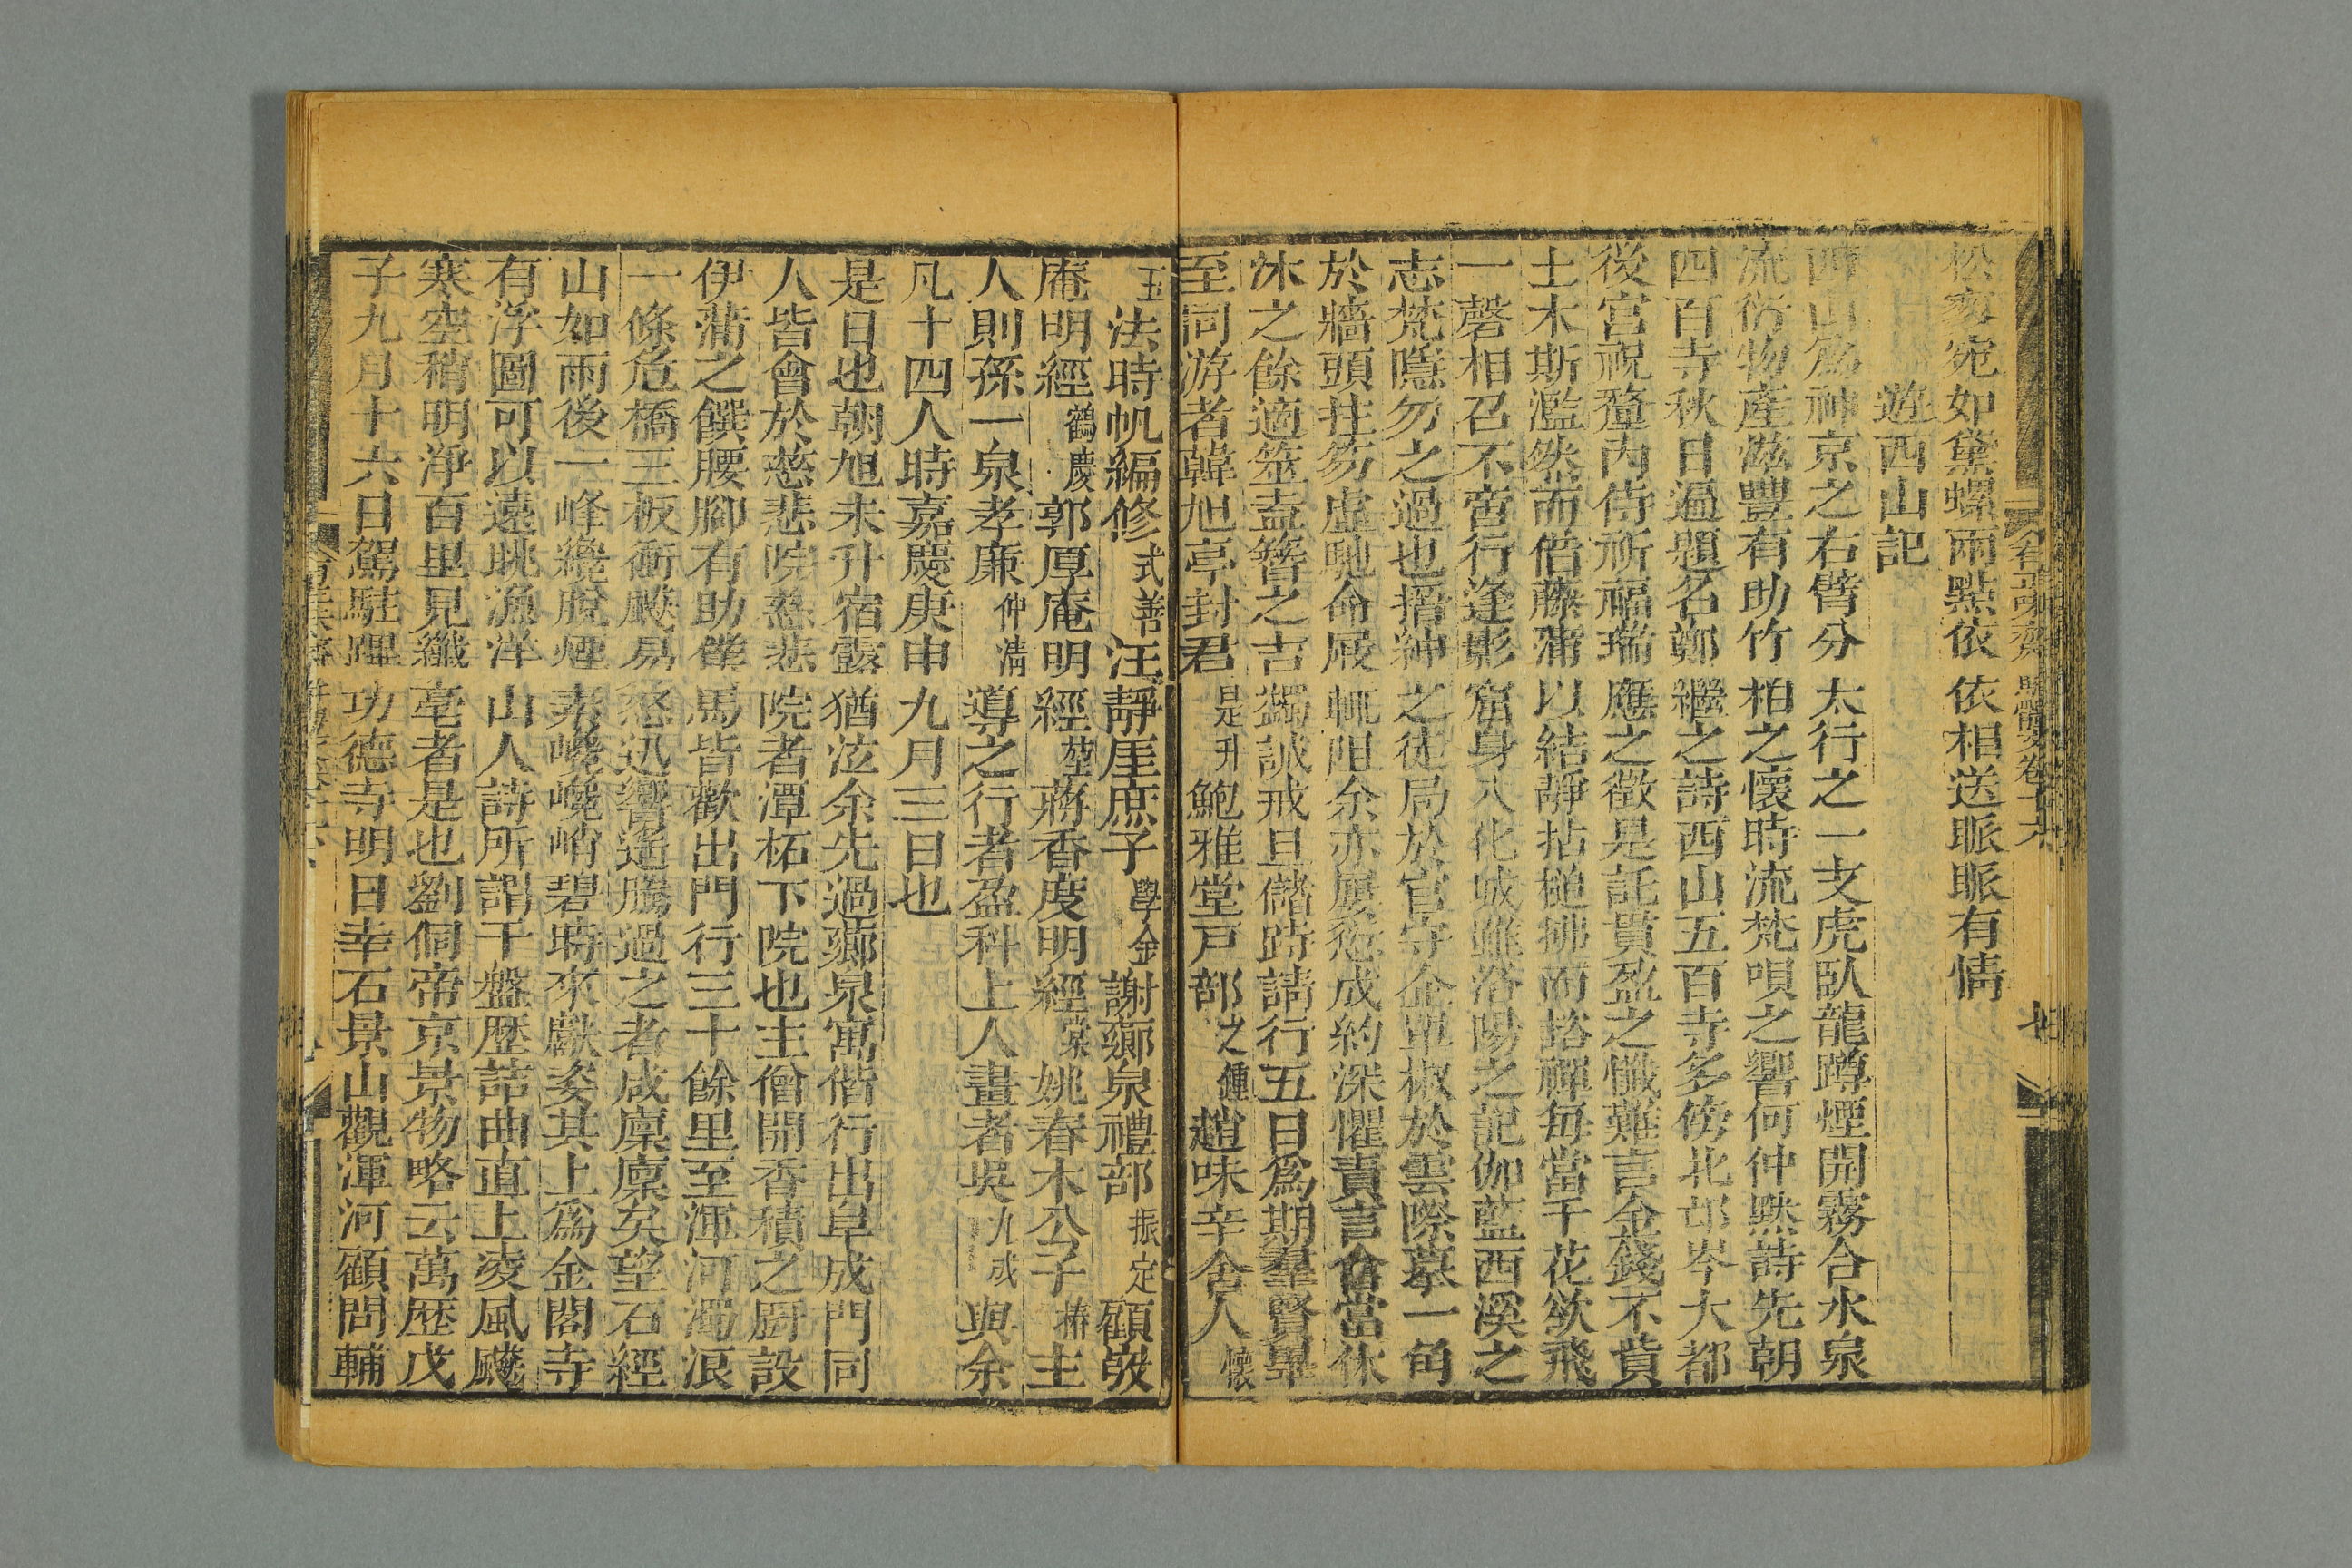 松寥宛如黛螺雨點依依相送脈脈有情
遊西山記
西山為神京之右臂分太行之一支虎臥龍蹲煙開霧合水泉
流衍物產滋豐有助竹柏之懷時流梵唄之響何仲默詩先朝
四百寺秋日遍題名鄭繼之詩西山五百寺多傍北邙岑大都
後宮祝釐內侍祈福瑞應之徵是託貫盈之懺難言金錢不貲
土木斯濫然而借藤蒲以結靜拈槌拂而探禪每當千花欲飛
一磬相召不啻行逢影窟身入化城雖洛陽之記伽藍西溪之
志梵隱勿之過也搢紳之徒局於官守企單椒於雲際摹一角
於牆頭拄笏虛馳命屐輒阻余亦屢愆成約深懼責言會當休
沐之餘適筮盍簪之吉蠲誠戒旦儲跱請行五日為期羣賢畢
至同游者韓旭亭封君是升鮑雅堂戸部之鍾趙味辛舍人懷
玉法時帆編修式善汪靜厓庶子學金謝薌泉禮部振定顧弢
庵明經鶴慶郭厚庵明經堃蔣香度明經棠姚春木公子椿主
人則孫一泉孝廉仲清導之行者盈科上人畫者吳九成與余
凡十四人時嘉慶庚申九月三日也
是日也朝旭未升宿露猶泫余先過薌泉寓偕行出阜成門同
人皆會於慈悲院慈悲院者潭柘下院也主僧開香積之厨設
伊蒲之饌腰腳有助僕馬皆歡出門行三十餘里至渾河濁浪
一條危橋三板衝颷易怒迅響遙騰過之者咸廩廩矣望石經
山如雨後一峰纔脫煙素巉巉峭碧時來獻姿其上為金閣寺
有浮圖可以遠眺漁洋山人詩所謂千盤歷詰曲直上凌風飈
寒空稍明淨百里見纖毫者是也劉侗帝京景物略云萬歷戊
子九月十六日駕駐蹕功德寺明日幸石景山觀渾河顧問輔